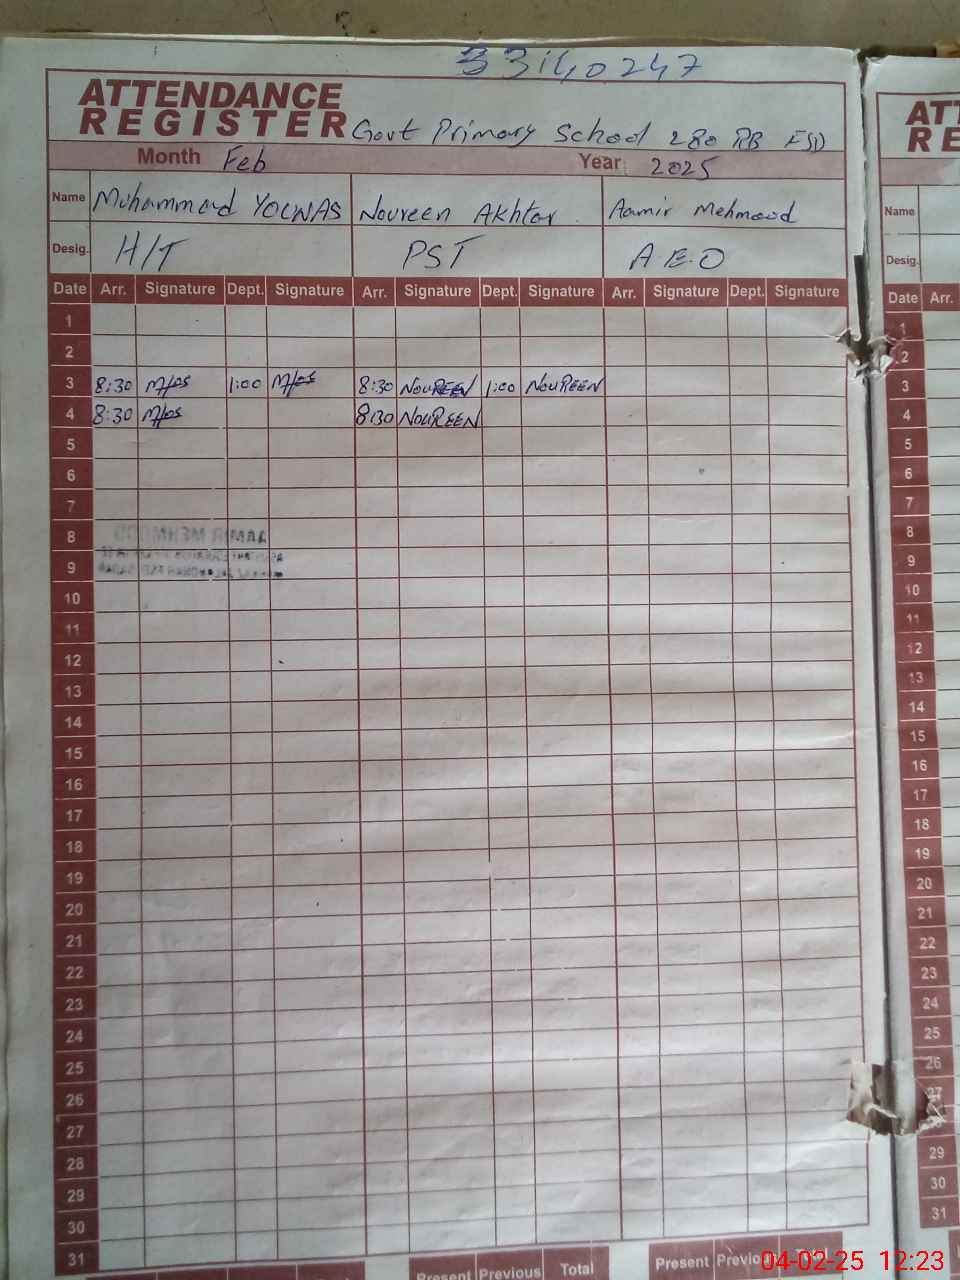 33140247
ATTENDANCE
REGISTER Govt Primary School 280 RB FSD
Month Feb Year 2025
Name Muhammad YOUNAS Noureen Akhtar Aamir Mehmood
Desig. H/T PST A.E.O
Date Arr. Signature Dept. Signature Arr. Signature Dept. Signature Arr. Signature Dept. Signature
1
2
3 8:30 1:00 8:30 NOUREEN 1:00 NOUREEN
4 8:30 8:30 NOUREEN
5
6
7
8 AAMIR MEHMOOD
9
10
11
12
13
14
15
16
17
18
19
20
21
22
23
24
25
26
27
28
29
30
31
Present Previous Total Present Previous
ATT
RE
Name
Desig.
Date Arr.
1
2
3
4
5
6
7
8
9
10
11
12
13
14
15
16
17
18
19
20
21
22
23
24
25
26
27
29
30
31
04-02-25 12:23